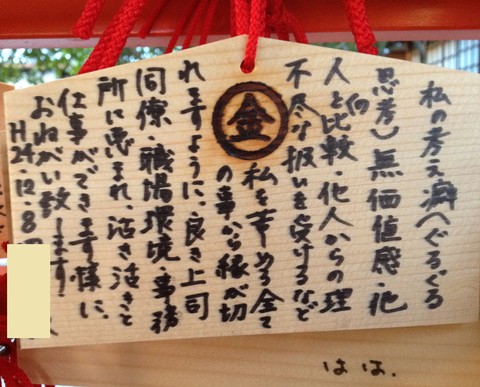 私の考え癖(ぐるぐる
思考)無価値感・他
人との比較・他人からの理
不尽な扱いを受けるなど
金
私を苦しめる全て
の事から縁が切
れますように、良き上司
同僚・職場環境・事務
所に恵まれ、活き活きと
仕事ができます様に、
おねがい致します!
H24.12.8
はは.